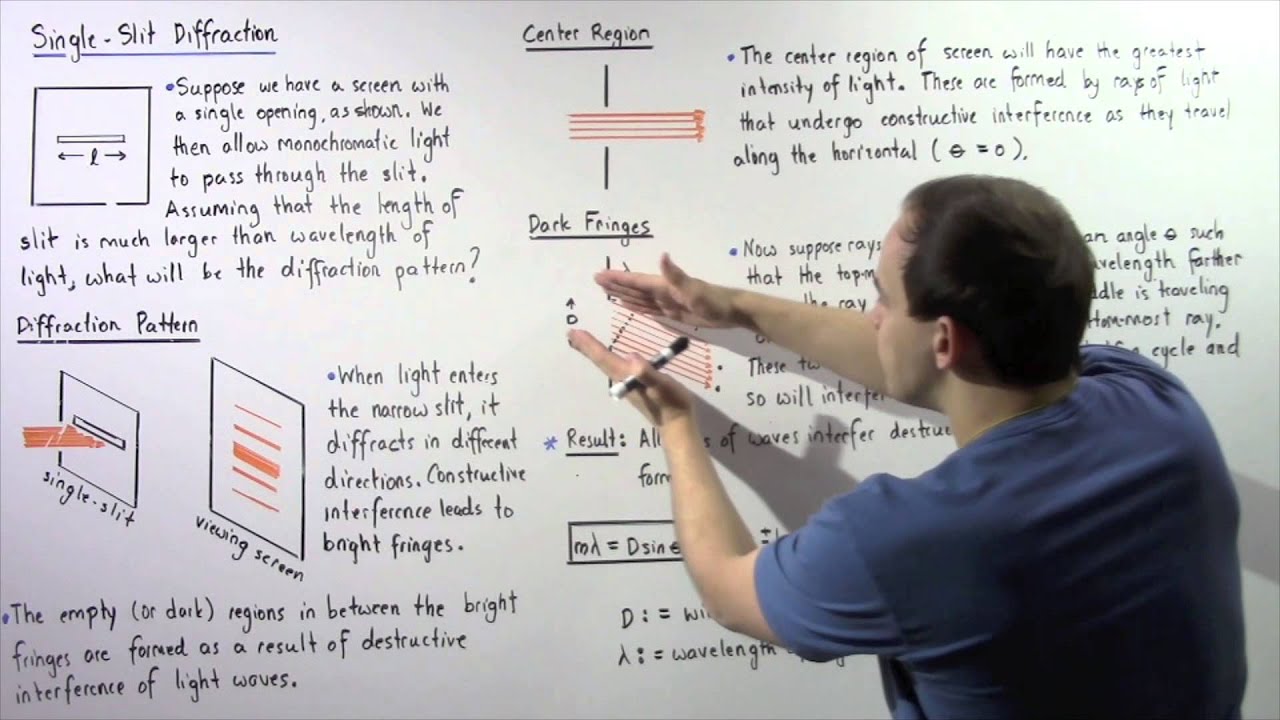 Single-Slit Diffraction
l
• Suppose we have a screen with
a single opening, as shown. We
then allow monochromatic light
to pass through the slit.
Assuming that the length of
slit is much larger than wavelength of
light, what will be the diffraction pattern?
Diffraction Pattern
single-slit
viewing screen
• When light enters
the narrow slit, it
diffracts in different
directions. Constructive
interference leads to
bright fringes.
• The empty (or dark) regions in between the bright
fringes are formed as a result of destructive
interference of light waves.
Center Region
• The center region of screen will have the greatest
intensity of light. These are formed by rays of light
that undergo constructive interference as they travel
along the horizontal (θ = 0).
Dark Fringes
D
• Now suppose rays an angle θ such
that the top-m farther
the ray is traveling
ray.
cycle and
These
so will interfer
* Result: of waves interfer destruc
mλ = Dsin
D : =
λ : = wavelength